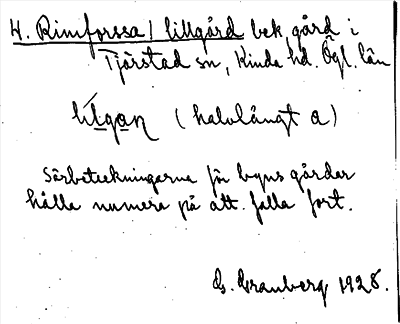 4. Rimforssa / lillgård bek. gård i
Tjärstad sn, Kinda hd. Ögl. län
(halvlångt a)
Särbeteckningarna för byns gårdar
hålla numera på att falla fort.
G. Granberg 1928.